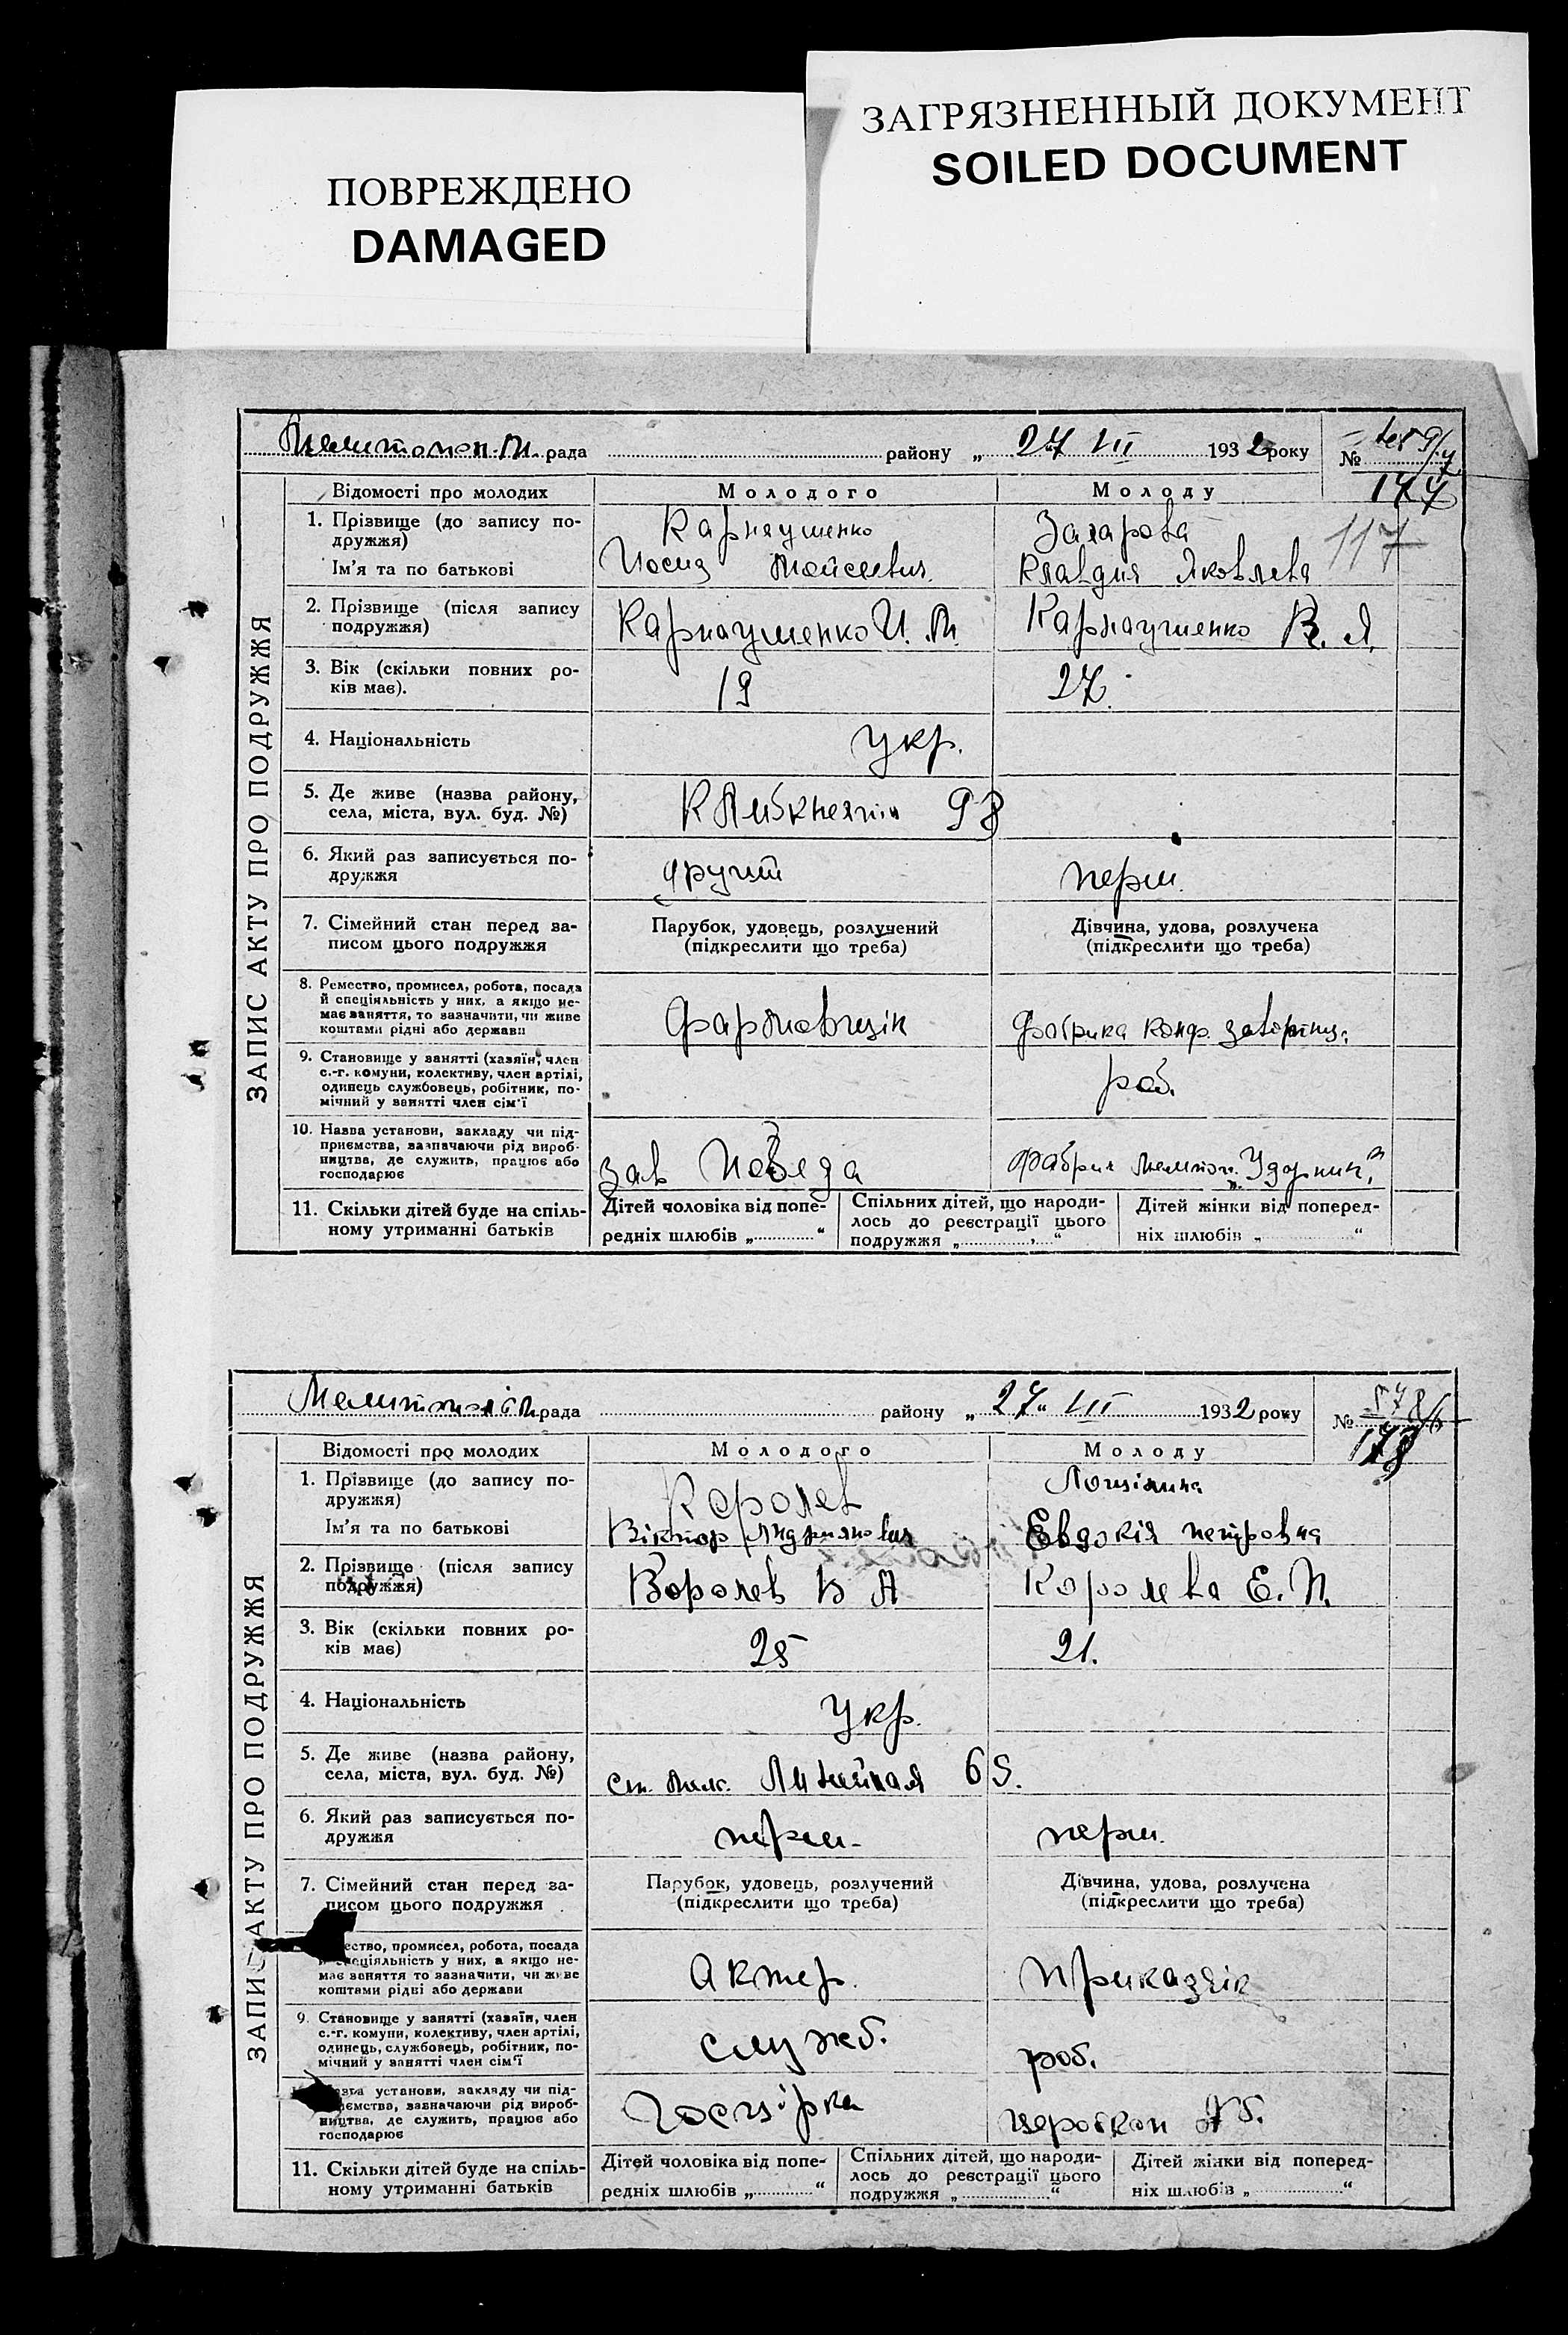 ПОВРЕЖДЕНО
DAMAGED
ЗАГРЯЗНЕННЫЙ ДОКУМЕНТ
SOILED DOCUMENT
ЗАПИС АКТУ ПРО ПОДРУЖЖЯ
рада району „ 27 VII 1932 року №
177
117
Відомості про молодих Молодого Молоду
1. Прізвище (до запису по-
дружжя) Карнаушенко Захарова
Ім'я та по батькові Иосиф Мойсеевич Клавдия Яковлева
2. Прізвище (після запису
подружжя) Карнаушенко И. М. Карнаушенко К. Я.
3. Вік (скільки повних ро-
ків має). 19 27.
4. Національність укр.
5. Де живе (назва району,
села, міста, вул. буд. №) К Либкнехта 93
6. Який раз записується по-
дружжя другий перш.
7. Сімейний стан перед за-
писом цього подружжя
Парубок, удовець, розлучений
(підкреслити що треба)
Дівчина, удова, розлучена
(підкреслити що треба)
8. Ремество, промисел, робота, посада
й спеціяльність у них, а якщо не-
має заняття, то зазначити, чи живе
коштами рідні або держави
фабрика конф.
9. Становище у занятті (хазяїн, член
с.-г. комуни, колективу, член артілі,
одинець службовець, робітник, по-
мічний у занятті член сім'ї
роб.
10. Назва установи, закладу чи під-
приємства, зазначаючи рід вироб-
ництва, де служить, працює або
господарює
зав Победа „Ударник"
11. Скільки дітей буде на спіль-
ному утриманні батьків
Дітей чоловіка від попе-
редніх шлюбів „ “
Спільних дітей, що народи-
лось до реєстрації цього
подружжя „ “
Дітей жінки від поперед-
ніх шлюбів „ “
ЗАПИС АКТУ ПРО ПОДРУЖЖЯ
рада району „ 27 “ VII 1932 року № 178
Відомості про молодих Молодого Молоду
1. Прізвище (до запису по-
дружжя) Королев
Ім'я та по батькові Віктор Андриянович Евдокія Петровна
2. Прізвище (після запису
подружжя) Королев В А Королева Е. П.
3. Вік (скільки повних ро-
ків має) 25 21.
4. Національність Укр.
5. Де живе (назва району,
села, міста, вул. буд. №) Линейная 65.
6. Який раз записується по-
дружжя перш- перш.
7. Сімейний стан перед за-
писом цього подружжя
Парубок, удовець, розлучений
(підкреслити що треба)
Дівчина, удова, розлучена
(підкреслити що треба)
ество, промисел, робота, посада
й спеціяльність у них, а якщо не-
має заняття то зазначити, чи живе
коштами рідні або держави
Актер.
9. Становище у занятті (хазяїн, член
с.-г. комуни, колективу, член артілі,
одинець, службовець, робітник, по-
мічний у занятті член сім'ї
служб. роб.
азва установи, закладу чи під-
приємства, зазначаючи рід вироб-
ництва, де служить, працює або
господарює
Госцірка
11. Скільки дітей буде на спіль-
ному утриманні батьків
Дітей чоловіка від попе-
редніх шлюбів „ “
Спільних дітей, що народи-
лось до реєстрації цього
подружжя „ “
Дітей жінки від поперед-
ніх шлюбів „ “